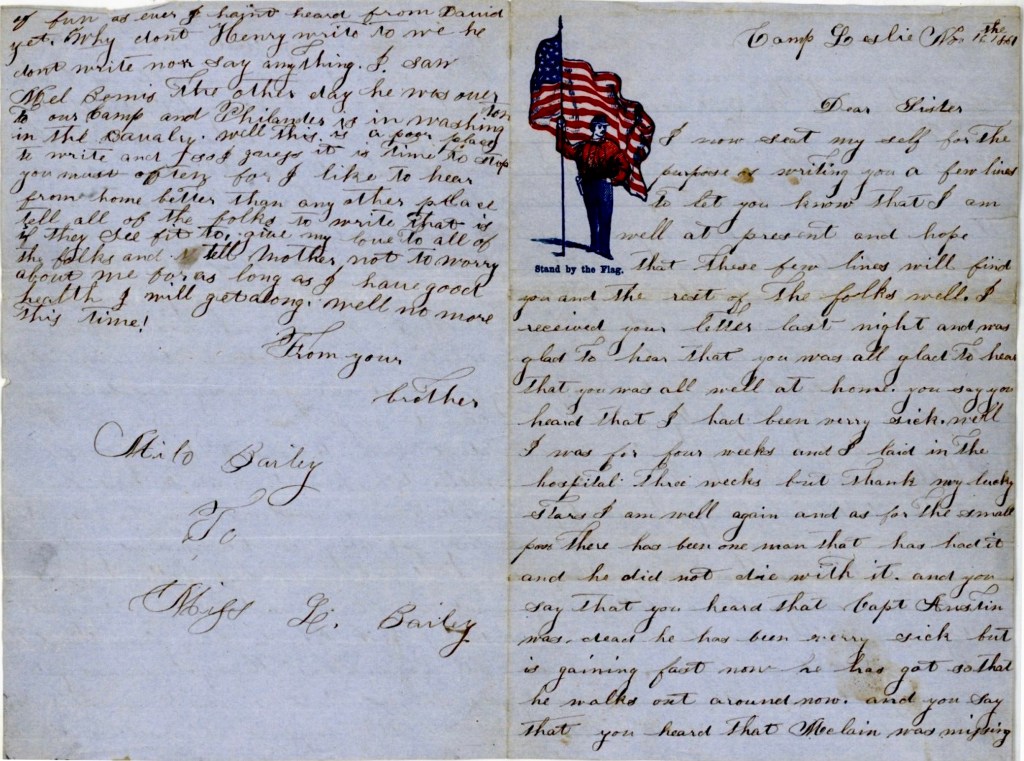 Camp Leslie Nov 12the 1861
Dear Sister
I now seat my self for the
purpose of writing you a few lines
to let you know that I am
well at present and hope
Stand by the Flag.
that these few lines will find
you and the rest of the folks well. I
received your letter last night and was
glad to hear that you was all glad to hear
that you was all well at home. you say you
heard that I had been verry sick. well
I was for four weeks and I laid in the
hospital three weeks but thank my lucky
stars I am well again and as for the small
pox there has been one man that has had it
and he did not die with it. and you
say that you heard that Capt Austin
was dead he has been verry sick but
is gaining fast now he has got so that
he walks out around now. and you say
that you heard that Mclain was missing
of fun as ever I haint heard from David
yet. Why dont Henry write to me he
dont write nor say anything. I saw
Mel Bemis the other day he was over
to our Camp and Philander is in washington
in the Cavalry. well this is a poor place
to write and so I guess it is time to stop
you must often for I like to hear
from home better than any other place
tell all of the folks to write that is
if they see fit to. give my love to all of
the folks and tell Mother not to worry
about me for as long as I have good
health I will get along. well no more
this time!
From your
brother
Milo Bailey
To
Miss L. Bailey